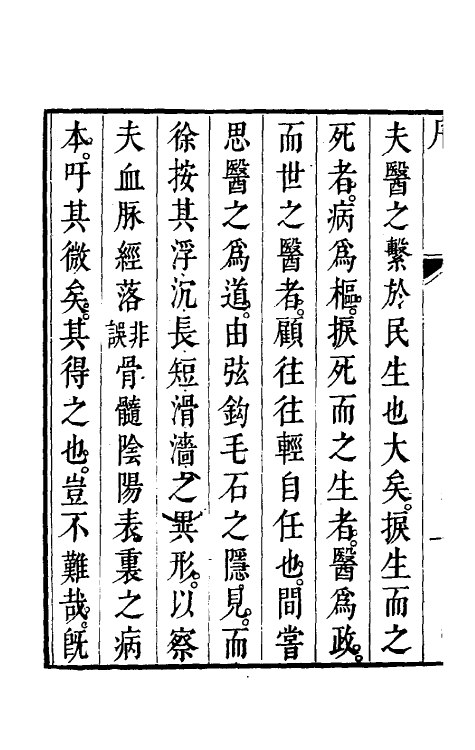 夫醫之繫於民生也大矣。捩生而之
死者。病為樞。捩死而之生者。醫為政。
而世之醫者。顧往往輕自任也。間嘗
思醫之為道。由弦鈎毛石之隱見。而
徐按其浮沉長短滑濇之異形。以察
夫血脉經落非誤骨髓陰陽表裏之病
本。吁其微矣。其得之也。豈不難哉。既